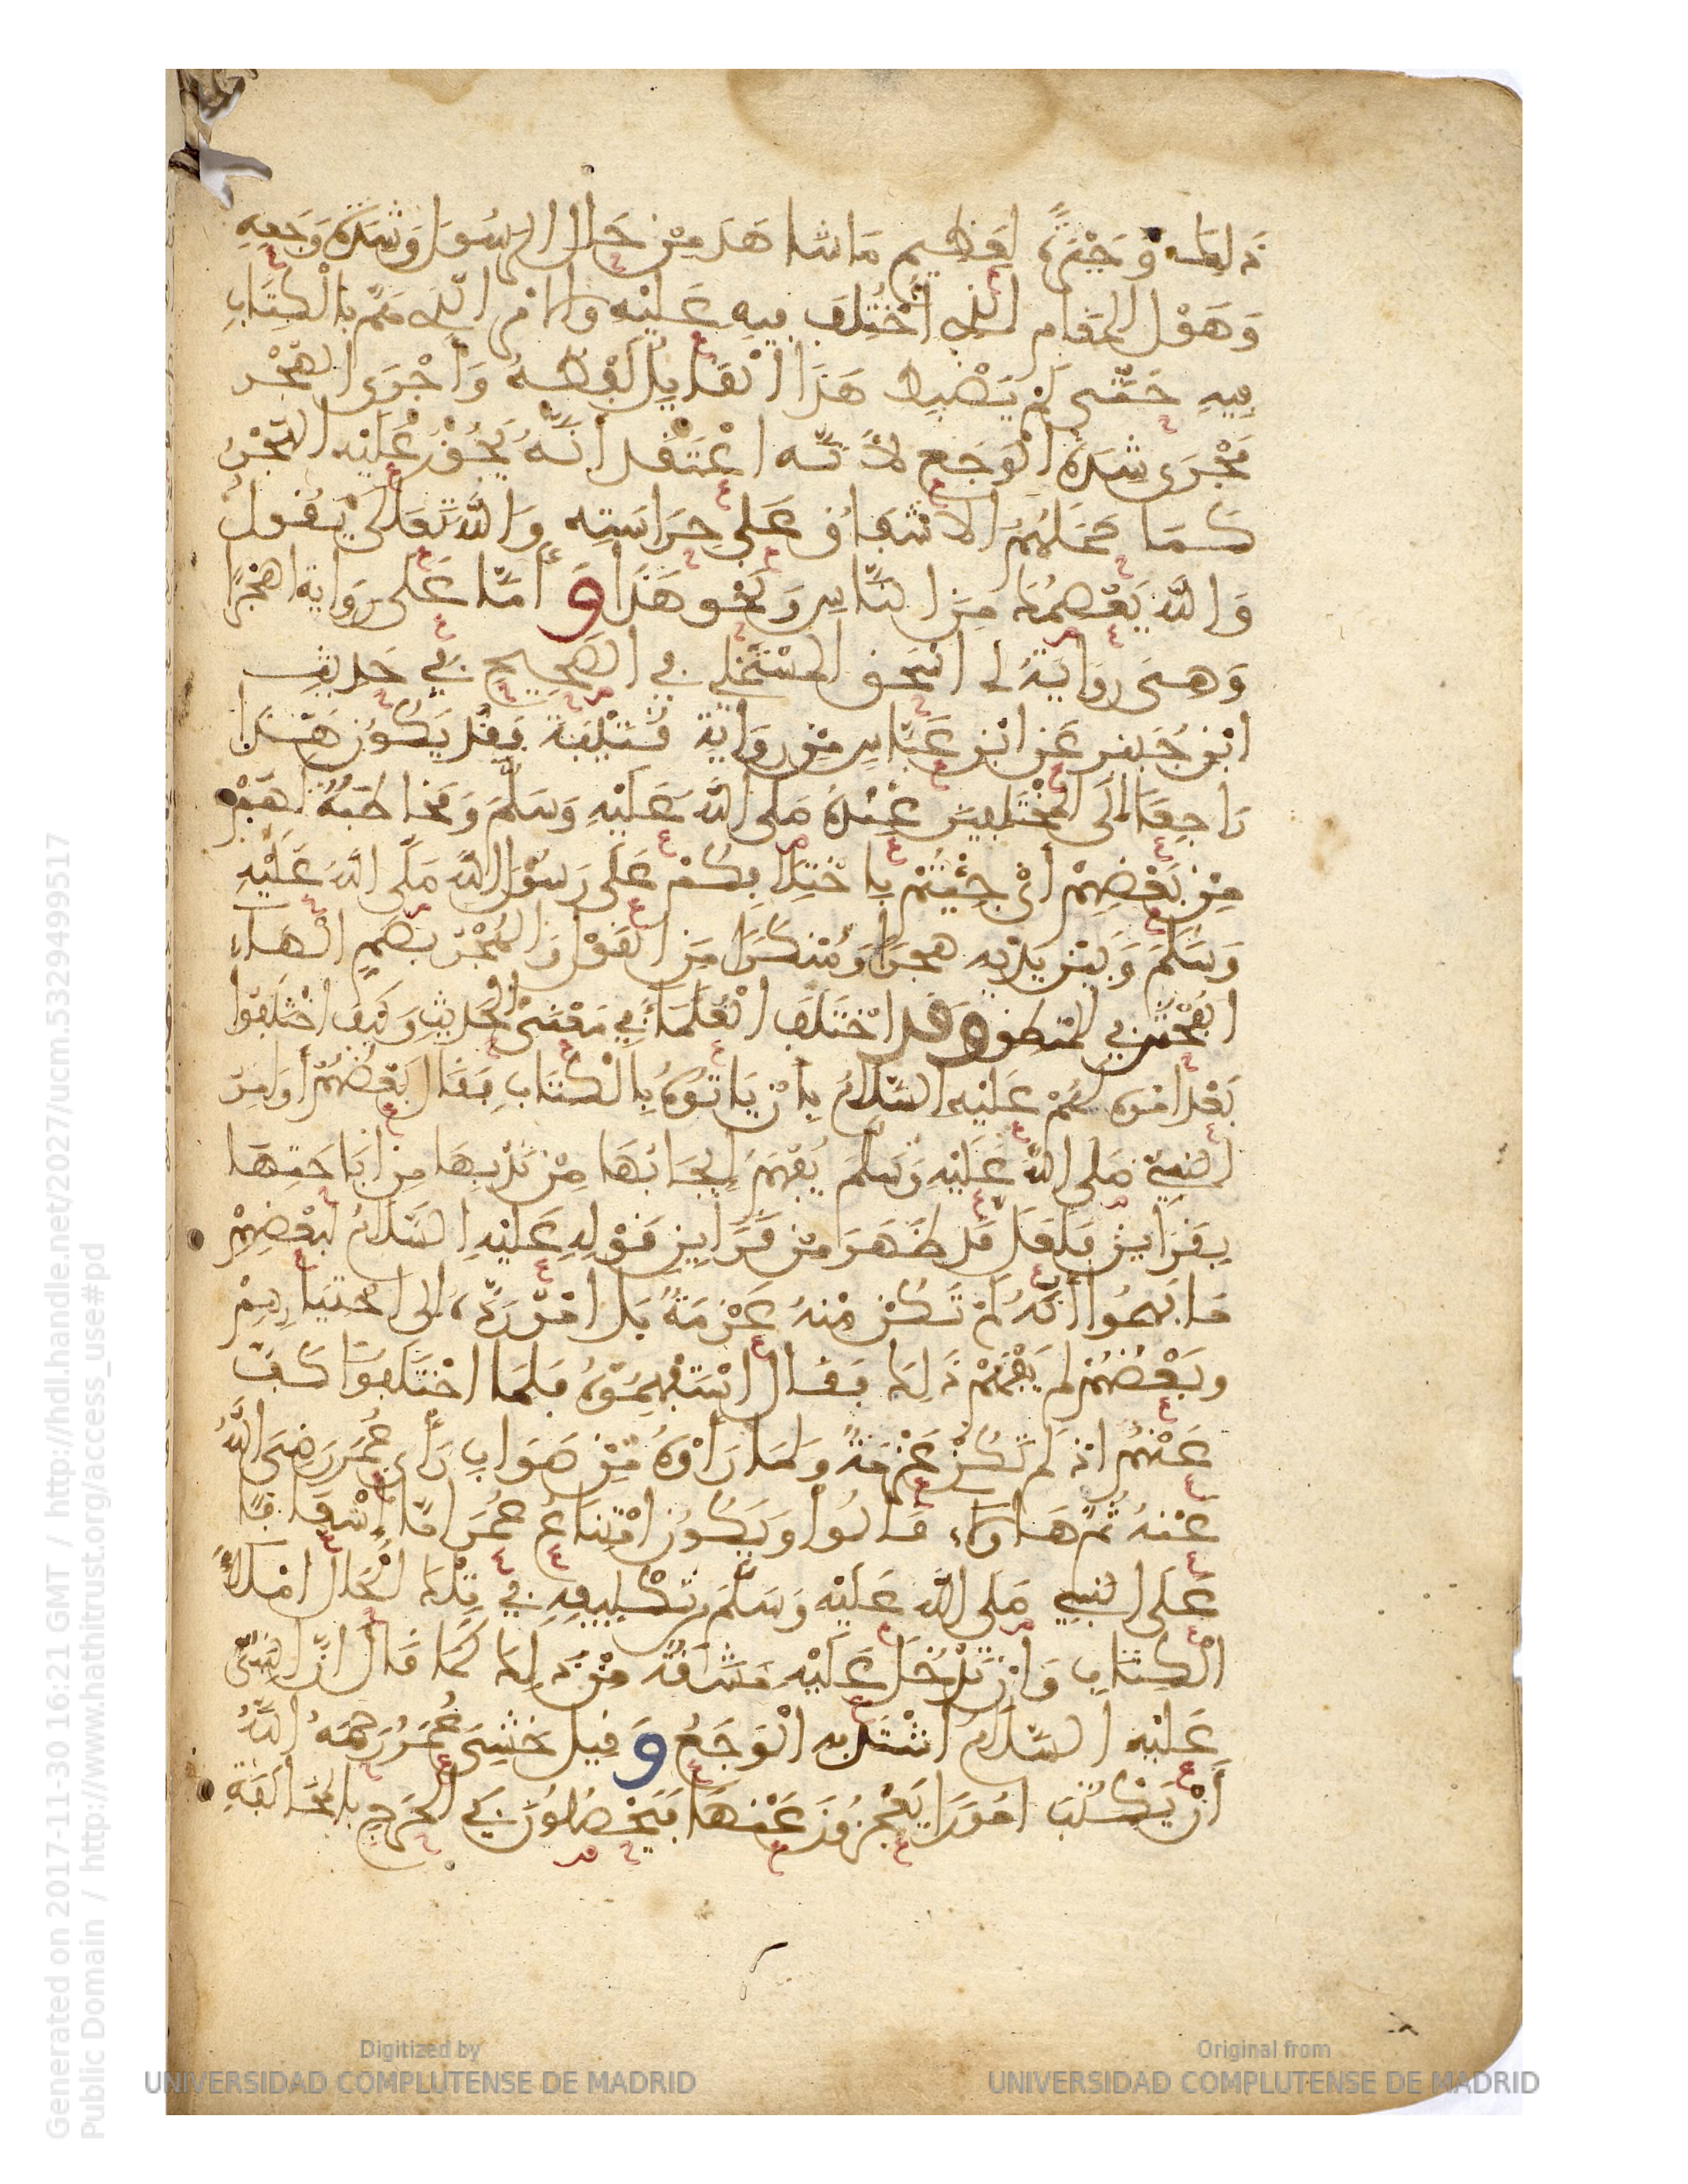 ذلك وَحَيْرَةً لِعَظِيمِ مَا شَاهَدَ مِنْ حَالِ الرسُولِ وَشِدَّةِ وَجَعِهِ
وَهَوْلِ المَقَامِ الَّذِي اخْتُلِفَ فِيهِ عَلَيْهِ وَالأمْرِ الَّذِي هَمَّ بِالْكِتَابِ
فِيهِ حَتَّى لَمْ يَضْبِطْ هَذَا الْقَائِلُ لَفْظَهُ وَأَجْرَى الهُجْرَ
مَجْرَى شِدَّةِ الْوَجَعِ لأَنَّه اعْتَقَدَ أنَّهُ يَجُوزُ عَلَيْهِ الهُجْرُ
كَمَا حَمَلَهُمُ الاشْفَاقُ عَلَى حِرَاسَتِهِ وَاللَّهُ تَعَالَى يَقُولُ
وَاللَّهُ يَعْصِمُكَ مِنَ النَّاسِ وَنَحْو هَذَا وَأَمَّا عَلَى رِوَايَةِ اهُجْرًا
وَهِيَ رِوَايَةُ ابي اسْحَق المسْتَمْلِي فِي الصَّحِيحِ فِي حَدِيثِ
ابْنِ جُبَيْرٍ عَنِ ابْنِ عَبَّاسٍ مِنْ رِوَايَةِ قُتَيْبَةَ فَقَدْ يَكُونُ هَذَا
رَاجِعًا إلَى المُخْتَلِفِينَ عِنْدَهُ صَلى اللَّهُ عَلَيْهِ وَسَلَّمَ وَمُخَاطَبَةً لَهُمْ
مِنْ بَعْضِهِمْ أيْ جِئْتُمْ بِاخْتِلَافِكُمْ عَلَى رَسُولِ اللَّهِ صَلَّى اللَّهُ عَلَيْهِ
وَسَلَّمَ وَبَيْنَ يَدَيْهِ هُجْرًا وَمُنْكَرًا مِنَ الْقَوْلِ وَالْهُجْرُ بِضَمِّ الْهَاءِ
الفُحْشُ فِي المَنْطِقِ وَقَدِ اخْتَلَفَ الْعُلَمَاءُ فِي مَعْنَى الْحَدِيثِ وَكَيْفَ اخْتَلَفُوا
بَعْدَ امْرِهِ لَهُمْ عَلَيْهِ السَّلَامُ بِأنْ يَاتُوهُ بِالْكِتَابِ فَقَالَ بَعْضُهُمْ أوَامِرُ
النَّبِيِّ صَلى اللَّهُ عَلَيْهِ وَسَلَّمَ يُفْهَمُ إيجَابُهَا مِنْ نَدْبِهَا مِنْ إبَاحَتِهَا
بِقَرَايِنَ فَلَعَلَّ قَدْ ظَهَرَ مِنْ قَرَايِنِ قَوْلِهِ عَلَيْهِ السَّلَامُ لِبَعْضِهِمْ
مَا فَهِمُوا أنَّهُ لَمْ تَكُنْ مِنْهُ عَزْمَةً بَلْ امْرٌ رَدَّهُ إلى اخْتِيَارِهِمْ
وبَعْضُهُمْ لَمْ يَفْهَمْ ذَلِكَ فَقَالَ اسْتَفْهِمُوهُ فَلَمَّا اخْتَلَفُوا كَفَّ
عَنْهُم اذْ لَمْ تَكُنْ عَزْمَةً وَلمَا رَأوْهُ مِنْ صَوَابِ رَأيِ عُمَرَ رَضِيَ اللَّهُ
عَنْهُ ثُمَّ هَاؤلَاءِ قَالُوا وَيَكُونُ امْتِنَاعُ عُمَرَ امَّا إشْفَاقًا
عَلَى النَّبِيِّ صَلى اللَّهُ عَلَيْهِ وَسَلَّمَ مِن تَكْلِيفِهِ فِي تِلْكَ الْحَالِ امْلَاءَ
الْكِتَابِ وَانْ تَدْخُلَ عَلَيْهِ مَشَقَّةٌ مِنْ ذَلِكَ كَمَا قَالَ انَّ النَّبِيَّ
عَلَيْهِ السَّلَامُ اشْتَدَّ بِهِ الْوَجَعُ وَقِيلَ خَشِيَ عُمَرُ رَحِمَهُ اللَّهُ
أنْ يَكْتُبَ امُورًا يَعْجِزُونَ عَنْهَا فَيَحْصُلُونَ فِي الْحَرَجِ بِالْمُخَالَفَةِ
Generated on 2017-11-30 16:21 GMT / http://hdl.handle.net/2027/ucm.5329499517
Public Domain / http://www.hathitrust.org/access_use#pd
Digitized by
UNIVERSIDAD COMPLUTENSE DE MADRID
Original from
UNIVERSIDAD COMPLUTENSE DE MADRID